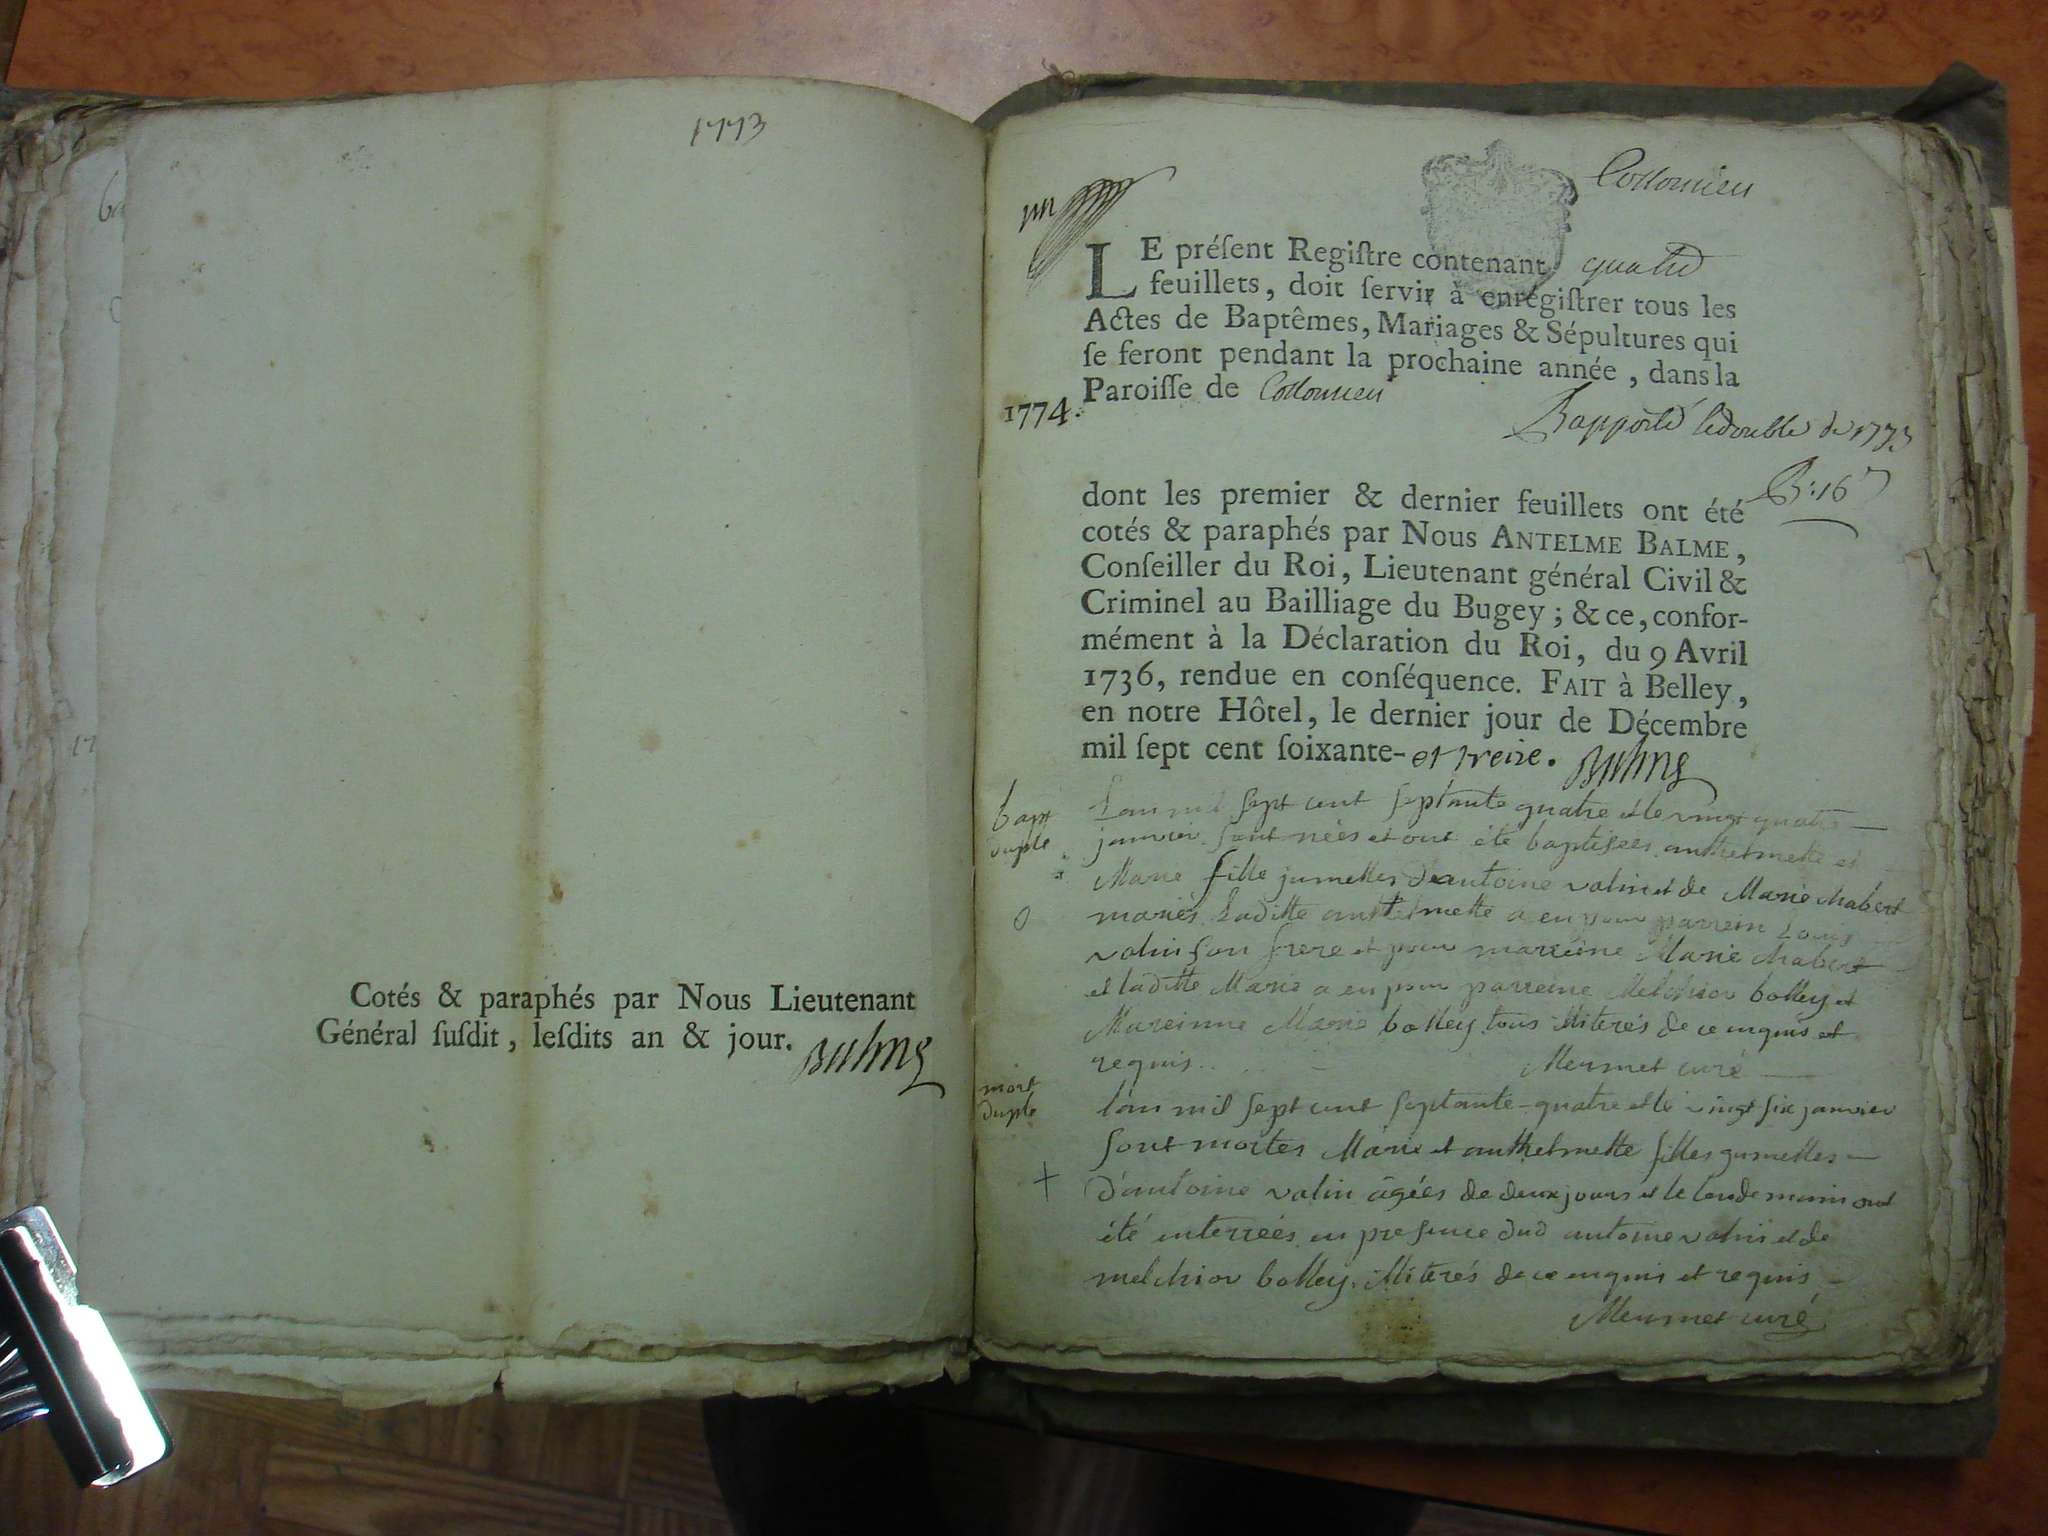 1773
Cotés & paraphés par Nous Lieutenant
Général ſuſdit, leſdits an & jour.
Balme
un
Collomieu
LE préſent Regiſtre contenant quatre
feuillets, doit ſervir à enrégiſtrer tous les
Actes de Baptêmes, Mariages & Sépultures qui
ſe feront pendant la prochaine année, dans la
Paroiſſe de Collomieu
1774.
Rapporté le double de 1773
dont les premier & dernier feuillets ont été
cotés & paraphés par Nous ANTELME BALME,
Conſeiller du Roi, Lieutenant général Civil &
Criminel au Bailliage du Bugey; & ce, confor-
mément à la Déclaration du Roi, du 9 Avril
1736, rendue en conſéquence. FAIT à Belley,
en notre Hôtel, le dernier jour de Décembre
mil ſept cent ſoixante- et treize. Balme
bapt
duple
L'an mil sept cent septante quatre et le vingt quatre
janvier sont nées et ont été baptisées anthelmette et
Marie fille jumelles d'antoine valin et de Marie Chabert
mariés Laditte anthelmette a eu pour parrein Louis
valin son frere et pour marreine Marie Chabert
et laditte Marie a eu pour parreine Melchior bolley et
Mareinne Marie bolley tous illiterés de ce enquis et
requis. Mermet curé
mort
duple
l'an mil sept cent septante-quatre et le vingt six janvier
sont mortes Marie et anthelmette filles jumelles
d'antoine valin âgées de deux jours et le lendemain ont
été enterrées en presence dud antoine valin et de
melchior bolley. illiterés de ce enquis et requis
Mermet curé